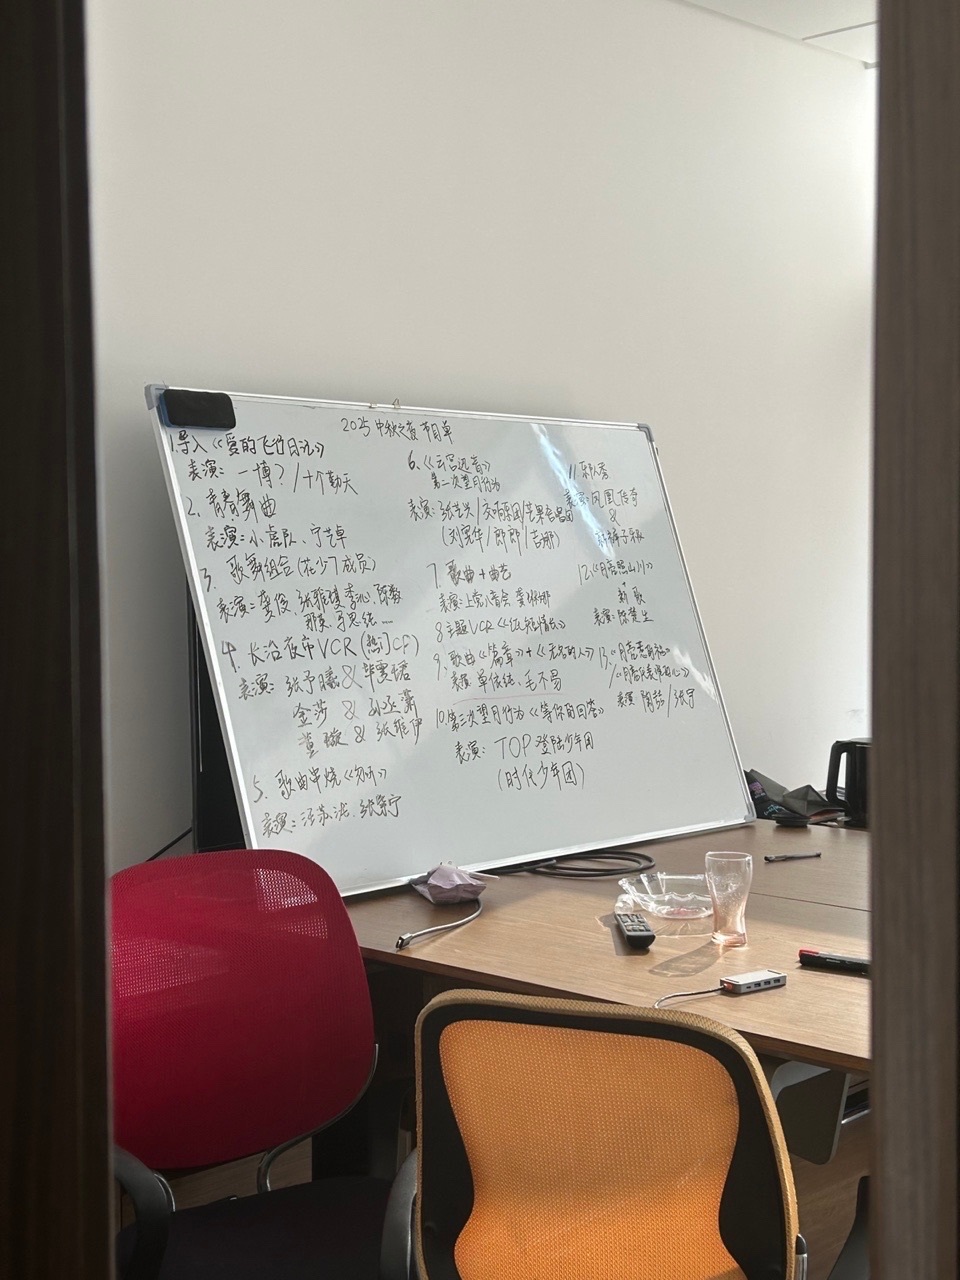 2025 中秋之夜 节目单
1.导入《爱的飞行日记》
表演：一博？/十个勤天
2、青春舞曲
表演：小虎队、宁艺卓
3、歌舞组合（花少7成员）
表演：龚俊、张雅 李沁、陈数
那英、 思纯……
4、长沙夜市VCR（热门CP）
表演：张予曦&
金莎 & 孙丞潇
董璇 & 张维伊
5、歌曲串烧
表演：汪苏泷、张紫宁
6、《云宫迅音》
第二次望月行为
表演：张艺兴/交响乐团/苹果合唱团
（刘宪华/郎郎/吉娜）
7、歌曲+曲艺
表演：上党八音会 龚琳娜
8主题VCR
9、歌曲《篇章》+《无名的人》
表演 单依纯、毛不易
10、第三次望月行为《等你的回答》
表演：TOP登陆少年团
（时代少年团）
11乐队秀
表演：凤凰传奇
&
12、《月亮照山川》
新歌
表演：陈楚生
13、
《月亮代表我的心》
表演 陶喆/张宇